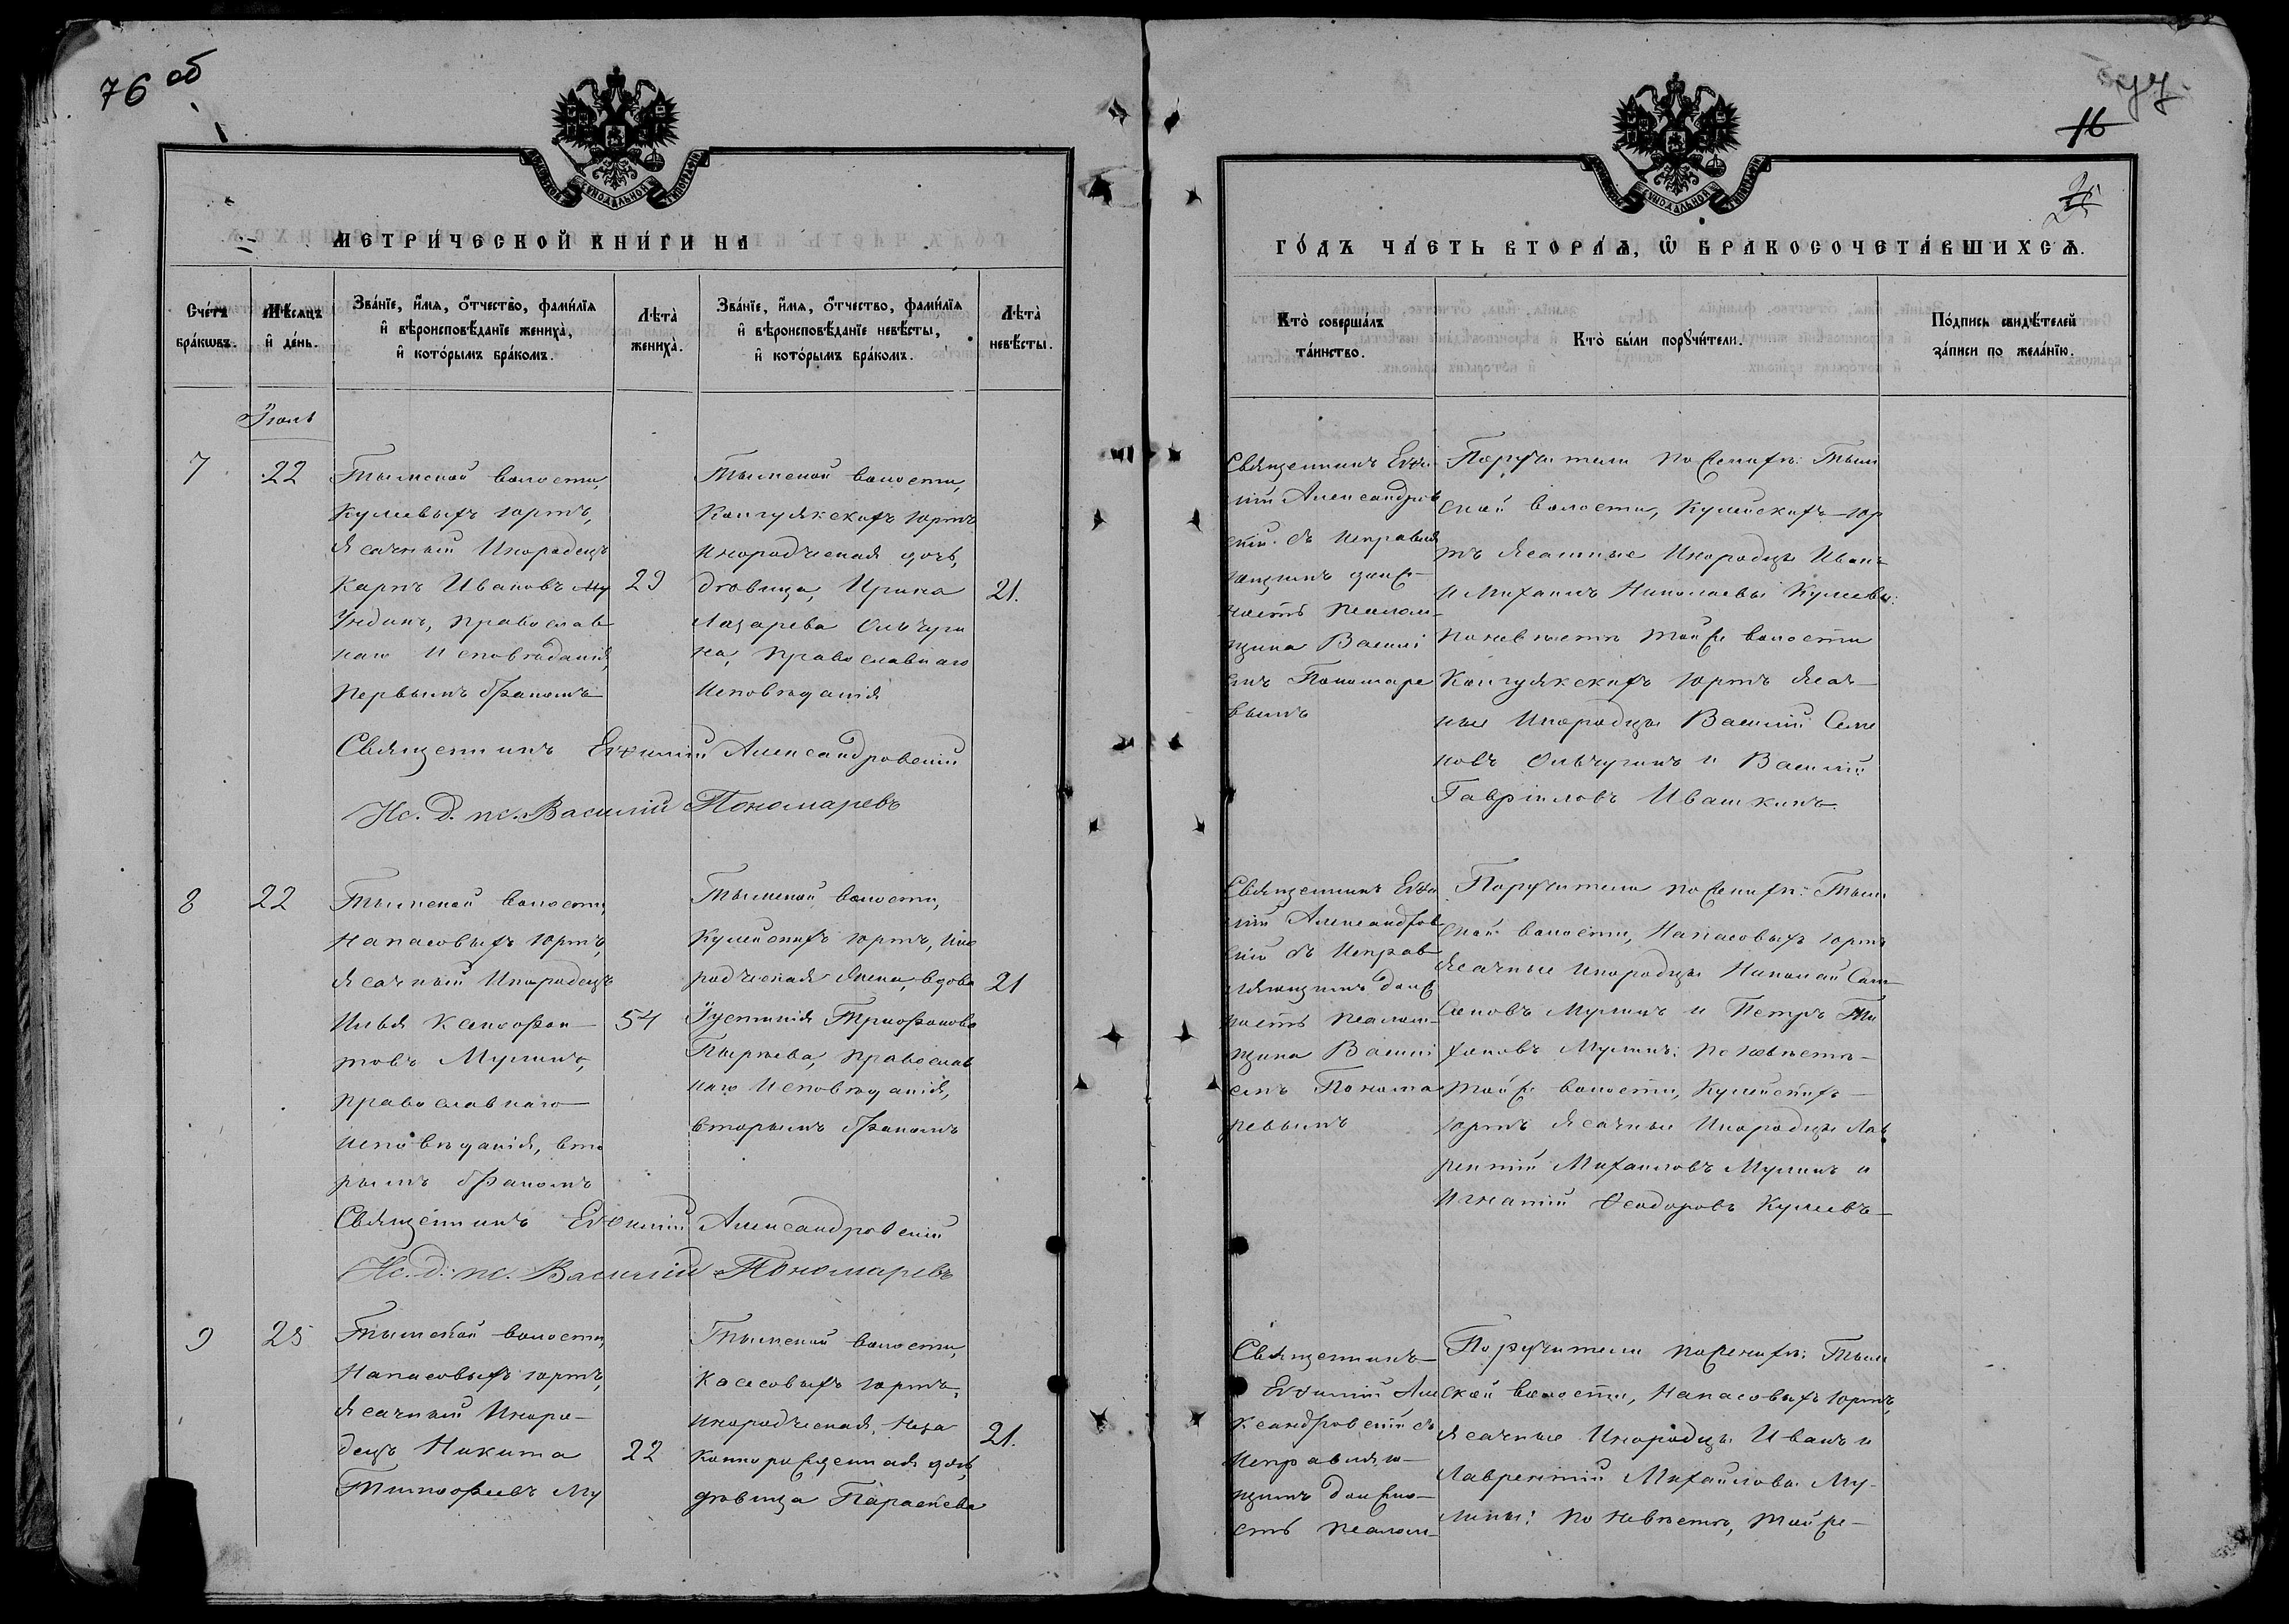 76 об
77
16
МЕТРИ́ЧЕСКОЙ КНИ́ГИ НА
Сче́тъ бра́кωвъ.
Мѣ́сяцъ и҆ де́нь.
Зва́нїе, и҆́мѧ, ѻ҆́тчество, фами́лїѧ
и҆ вѣроисповѣ́данїе жениха̀,
и҆ кото́рымъ бра́комъ.
Лѣ́та̀
жениха̀.
Зва́нїе, и҆́мѧ, ѻ҆́тчество, фами́лїѧ
и҆ вѣроисповѣ́данїе невѣ́сты,
и҆ кото́рымъ бра́комъ.
Лѣ́та̀
невѣ́сты.
Іюль
7
22
Тымской волости,
Кулеевыхъ юртъ,
Ясачный Инородецъ
Карпъ Ивановъ Му
ундинъ, православ
наго Исповѣданія,
первымъ бракомъ
29
Тымской волости,
Кангуякскихъ юртъ
инородческая дочь,
дѣвица, Ирина
Лазарева Ольчуги
на, православнаго
Исповѣданія
21.
Священникъ Евѳимій Александровскій
Ис. д. пс. Василій Пономаревъ
8
22
Тымской волости,
Напасовыхъ юртъ,
Ясачный Инородецъ
Илья Ксенофон
товъ Мулинъ,
православнаго
исповѣданія, вто
рымъ бракомъ
54
Тымской волости,
Кулейскихъ юртъ, Ино
родческая жена, вдова
Іустинія Трифонова
Пыршева, православ
наго Исповѣданія,
вторымъ бракомъ
21
Священникъ Евѳимій Александровскій
Ис. д. пс. Василій Пономаревъ
9
25
Тымской волости,
Напасовыхъ юртъ,
Ясачный Иноро
децъ Никита
Тимофеевъ Му
22
Тымской волости,
Касесовыхъ юртъ,
инородческая, неза
коннорожденная дочь,
дѣвица Параскева
21.
ГО́ДЪ ЧА́СТЬ ВТОРА́Ѧ, Ѽ БРАКОСОЧЕТА́ВШИХСѦ.
Кто̀ соверша́лъ
та́инство.
Кто̀ бы́ли порꙋчи́тели.
По́дпись свидѣ́телей
за́писи по жела́нїю.
Священникъ Евѳи
мій Александров
скій съ Исправля
ющимъ долж
ность псалом
щика Васи
емъ Пономаре
вымъ
Поручители по женихѣ: Тым
ской волости, Кулейскихъ юр
тъ Ясашные Инородцы Иванъ
и Михаилъ Николаевы Кулеевы:
по невѣстѣ той же волости
Кангуякскихъ юртъ Ясач
ные Инородцы Василій Семе
новъ Ольчугинъ и Василій
Гавріиловъ Ивашкинъ
Священникъ Евѳи
мій Александров
скій съ Исправ
ляющимъ долж
ность псалом
щика Васи
емъ Понома
ревымъ
Поручители по женихѣ: Тым
ской волости, Напасовыхъ юртъ
Ясачные инородцы Николай Сам
соновъ Мулинъ и Петръ Ти
хоновъ Мулинъ: по невѣстѣ
той же волости, Кулейскихъ
юртъ Ясачные Инородцы Лав
рентій Михаиловъ Мулинъ и
Игнатій Ѳеодоровъ Кулеевъ
Священникъ
Евѳимій Але
ксандровскій съ
Исправляю
щимъ должно
сть псалом
Поручители по женихѣ: Тым
ской волости, Напасовыхъ юртъ,
Ясачные Инородцы Иванъ и
Лаврентій Михаиловы Му
лины: по невѣстѣ, той же